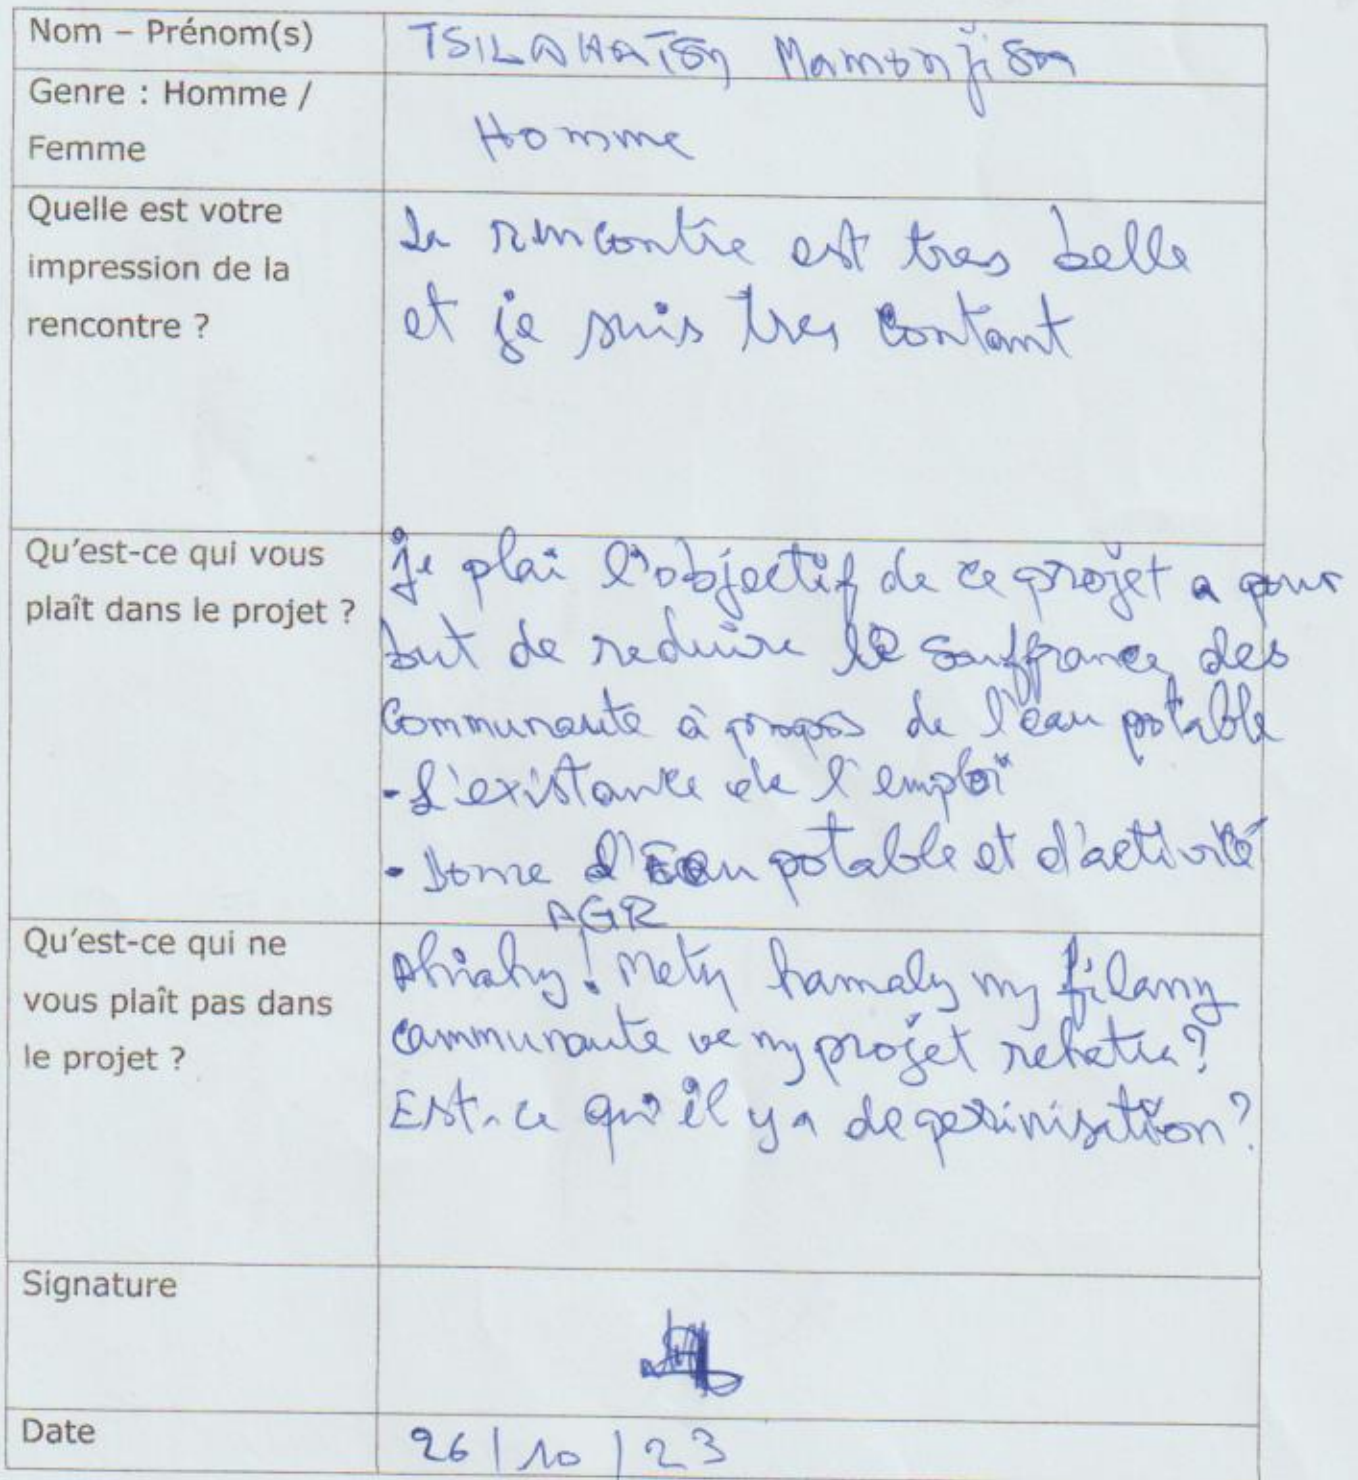 Nom – Prénom(s)
TSILAHATSY Mamonjison
Genre : Homme /
Femme
Homme
Quelle est votre
impression de la
rencontre ?
La rencontre est tres belle
et je suis tres contant
Qu'est-ce qui vous
plaît dans le projet ?
je plai l'objectif de ce projet a pour
but de reduire le souffrance des
Communauté à propos de l'eau potable
- L'existance de l'emploi
- Donne d'Eau potable et d'activité
AGR
Qu'est-ce qui ne
vous plaît pas dans
le projet ?
Ahiahy! Mety hamaly ny filany
communauté ve ny projet rehetra?
Est-ce qu'il y a de
Signature
Date
26/10/23